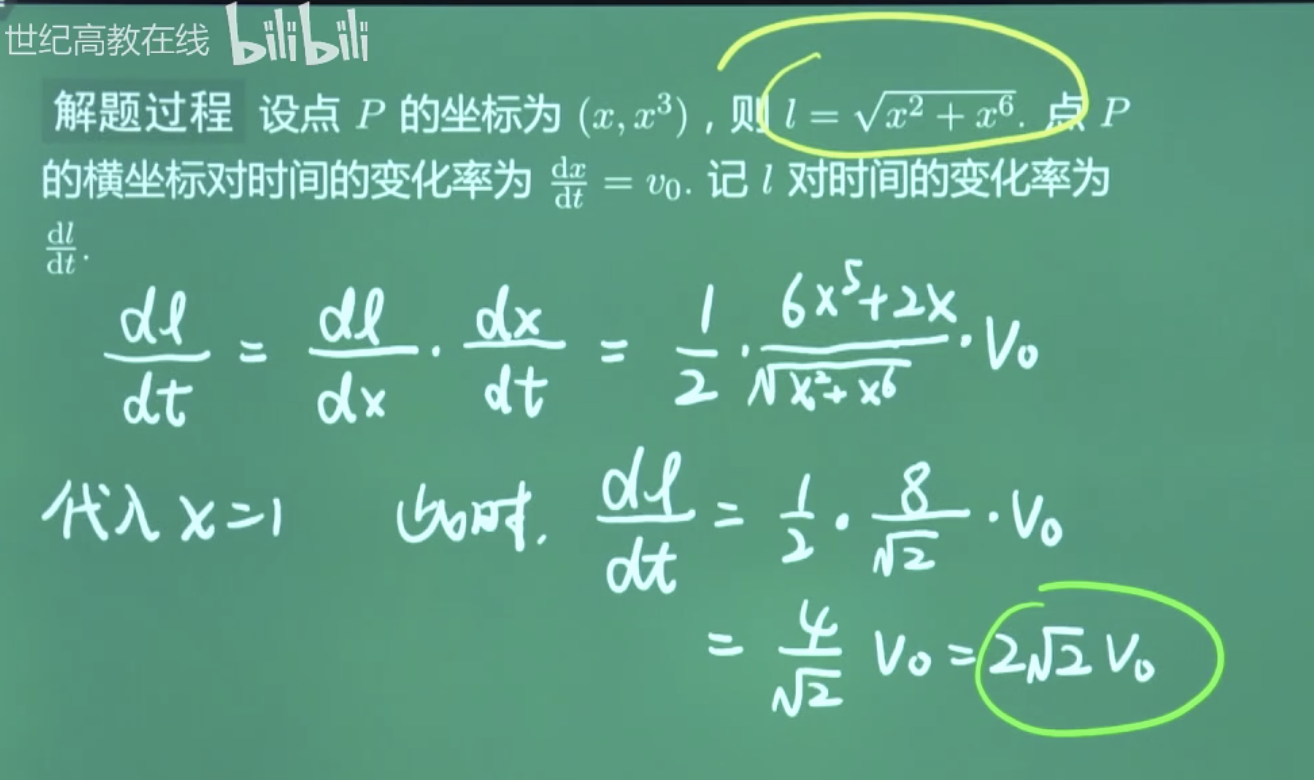 世纪高教在线 bilibili
解题过程 设点 P 的坐标为 (x, x³)，则 l = √(x² + x⁶). 点 P
的横坐标对时间的变化率为 dx/dt = v₀. 记 l 对时间的变化率为
dl/dt.
dl/dt = dl/dx · dx/dt = 1/2 · (6x⁵+2x)/√(x²+x⁶) · V₀
代入 x=1 此时, dl/dt = 1/2 · 8/√2 · V₀
= 4/√2 V₀ = 2√2 V₀